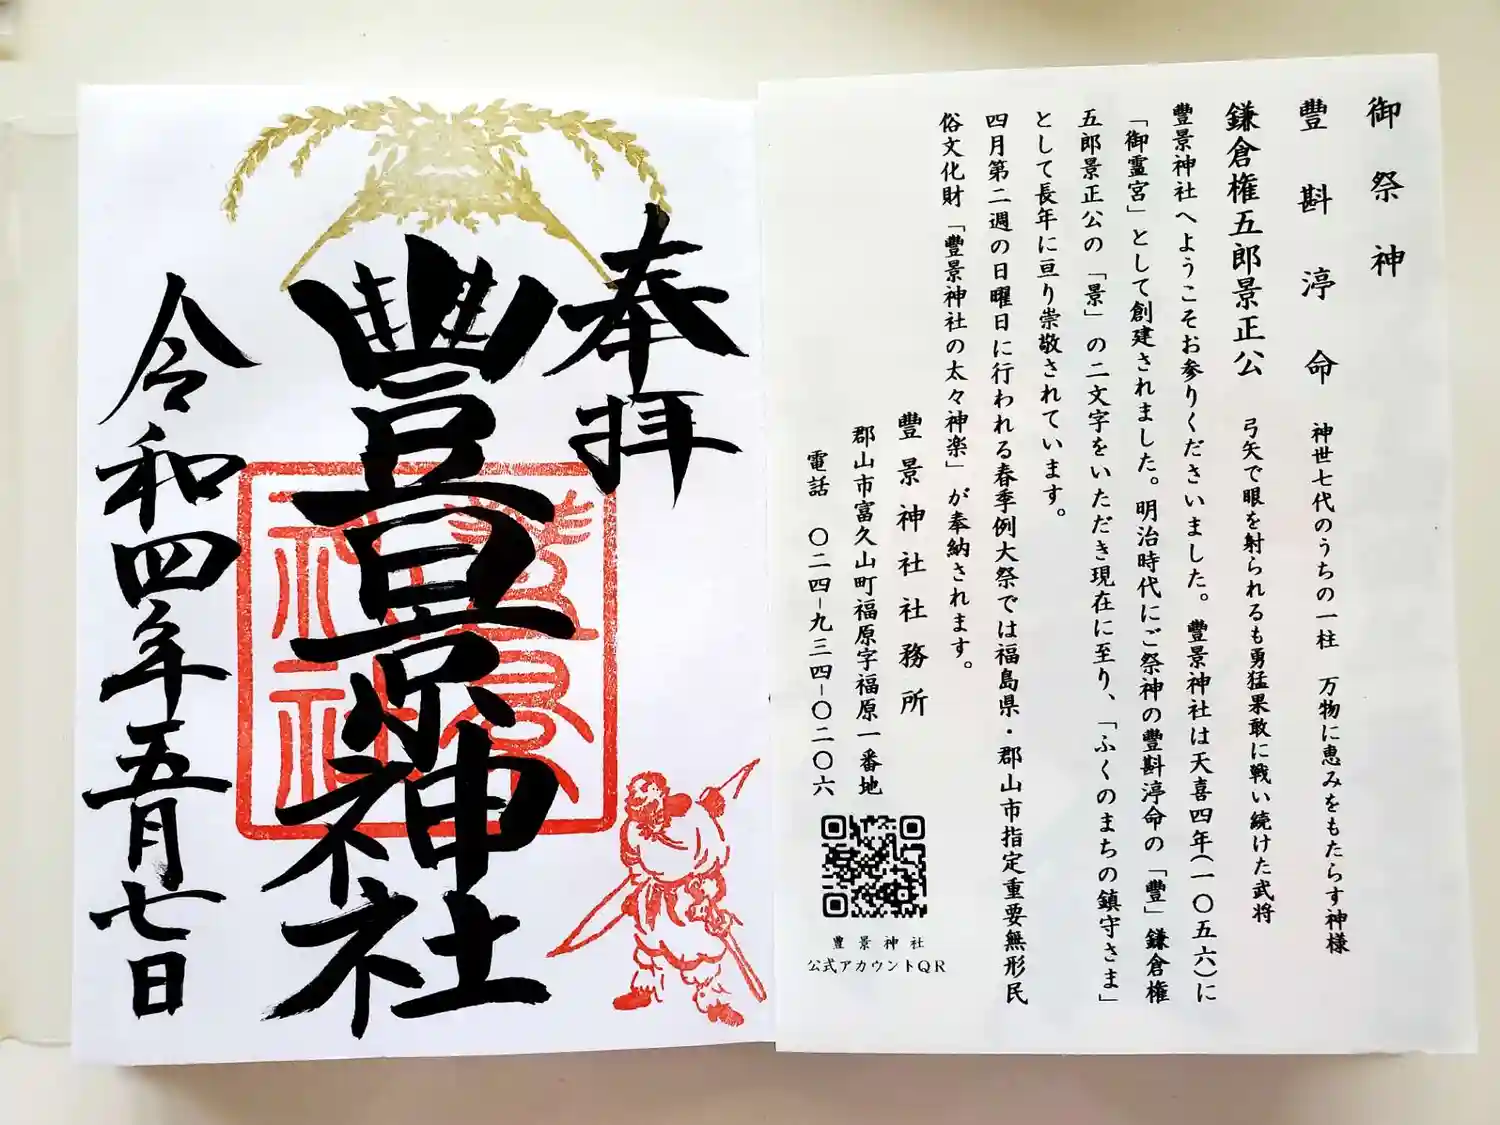 御祭神
豐斟渟命 神世七代のうちの一柱 万物に恵みをもたらす神様
鎌倉権五郎景正公 弓矢で眼を射られるも勇猛果敢に戦い続けた武将
豐景神社へようこそお参りくださいました。豐景神社は天喜四年(一〇五六)に
「御霊宮」として創建されました。明治時代にご祭神の豐斟渟命の「豐」鎌倉権
五郎景正公の「景」の二文字をいただき現在に至り、「ふくのまちの鎮守さま」
として長年に亘り崇敬されています。
四月第二週の日曜日に行われる春季例大祭では福島県・郡山市指定重要無形民
俗文化財「豐景神社の太々神楽」が奉納されます。
豐景神社社務所
郡山市富久山町福原字福原一番地
電話 〇二四-九三四-〇二〇六
豊景神社
公式アカウントQR
奉拝
豐景神社
豊景神社
令和四年五月七日